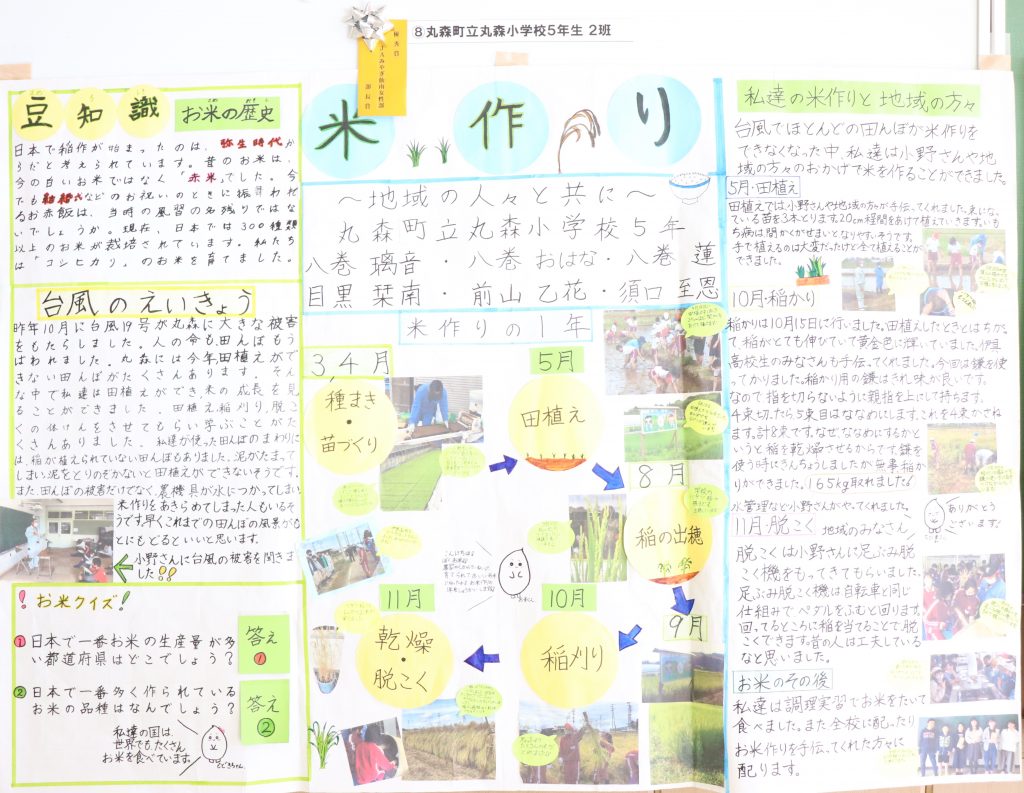 8 丸森町立丸森小学校5年生 2班
優秀賞
JAみやぎ仙南女性部
部長賞
豆知識
お米の歴史
日本で稲作が始まったのは、弥生時代か
らだと考えられています。昔のお米は、
今の白いお米ではなく「赤米」でした。今
でも結婚式などのお祝いのときに振るわれ
るお赤飯は、当時の風習の名残りではな
いでしょうか。現在、日本では300種類
以上のお米が栽培されています。私たち
は「コシヒカリ」のお米を育てました。
台風のえいきょう
昨年10月に台風19号が丸森に大きな被害
をもたらしました。人の命も田んぼもう
ばわれました。丸森には今年田植えがで
きない田んぼがたくさんあります。そん
な中で私達は田植えができ米の成長を見
ることができました。田植え、稲刈り、脱こ
くの体けんをさせてもらい学ぶことがた
くさんありました。私達が使った田んぼのまわりに
は、稲が植えられていない田んぼもありました。泥がたまって
しまい泥をとりのぞかないと田植えができないそうです。
また、田んぼの被害だけでなく、農機具が水につかってしまい
米作りをあきらめてしまった人もいるそ
うです。早くこれまでの田んぼの風景がも
とにもどるといいと思います。
小野さんに台風の被害を聞きま
した!!
お米クイズ!
①日本で一番お米の生産量が多
い都道府県はどこでしょう?
答え①
②日本で一番多く作られている
お米の品種はなんでしょう?
答え②
私達の国は
世界でも、たくさん
お米を食べています。
米作り
〜地域の人々と共に〜
丸森町立丸森小学校5年
八巻 璃音・八巻 おはな・八巻 蓮
目黒 栞南・前山 乙花・須口 至恩
米作りの1年
3,4月
種まき
・
苗づくり
5月
田植え
8月
稲の出穂
9月
10月
稲刈り
11月
乾燥
・
脱こく
私達の米作りと地域の方々
台風でほとんどの田んぼが米作りを
できなくなった中、私達は小野さんや地
域の方々のおかげで米を作ることができました。
5月・田植え
田植えでは、小野さんや地域の方々が手伝ってくれました。束にな
っている苗を3本とります。20cm程間をあけて植えていきます。いも
ち病は間かくがせまいとなりやすいそうです。
手で植えるのは大変だったけど全て植えることが
できました。
10月・稲かり
稲かりは10月15日に行いました。田植えしたときとはちがっ
て、稲がとても伸びていて黄金色に輝いていました。伊具
高校生のみなさんも手伝ってくれました。今回は鎌を使
ってかりました。稲かり用の鎌はきれ味が良いです。
なので指を切らないように親指を上にして持ちます。
4束切ったら5束目はななめにします。これを4束かさね
ます。計8束です。なぜ、ななめにするかと
いうと稲を乾燥させるからです。鎌を
使う時にきんちょうしましたが無事稲か
りができました。165kg取れました!
水管理など小野さんがやってくれました。
ありがとう
ございます!
11月・脱こく 地域のみなさん
脱こくは小野さんに足ぶみ脱
こく機をもってきてもらいました。
足ぶみ脱こく機は自転車と同じ
仕組みでペダルをふむと回ります。
回ってるところに稲を当てることで脱
こくできます。昔の人は工夫している
なと思いました。
お米のその後
私達は調理実習でお米をたいて
食べました。また全校に配ったり
お米作りを手伝ってくれた方々に
配ります。